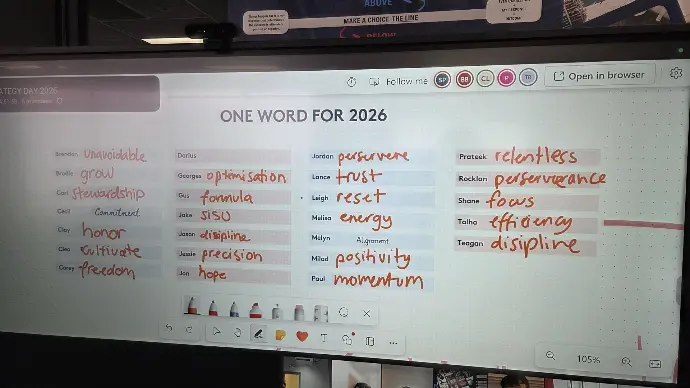 ABOVE
MAKE A CHOICE THE LINE
BELOW
STRATEGY DAY 2026
Follow me
SP
BB
CL
P
TR
Open in browser
ONE WORD FOR 2026
Brendan unavoidable
Brodie grow
Carl stewardship
Cecil Commitment
Clay honor
Cleo cultivate
Corey freedom
Darius
Georges optimisation
Gus formula
Jake sisu
Jason disipline
Jessie precision
Jon hope
Jordan perservere
Lance trust
Leigh reset
Melisa energy
Melyn Alignment
Milad positivity
Paul momentum
Prateek relentless
Rocklan perserverance
Shane focus
Talha efficiency
Teagan disipline
T
105%